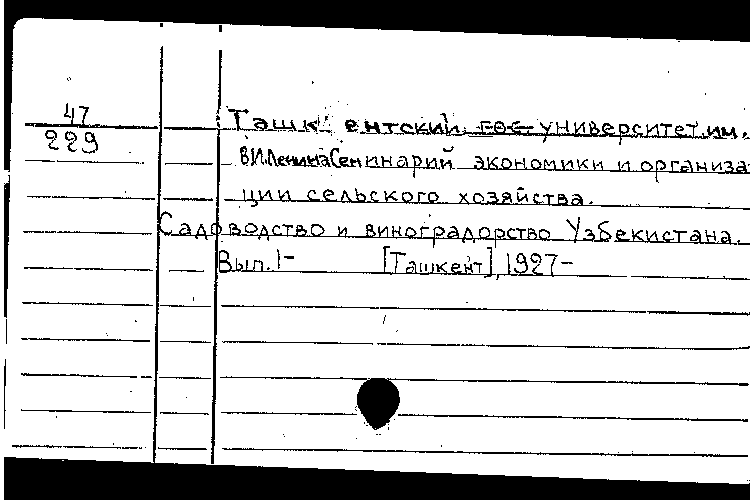 47
229
Ташкентский гос университет им.
В.И.Ленина Семинарий экономики и организа
ции сельского хозяйства.
Садоводство и виноградорство Узбекистана.
Вып.1- [Ташкент], 1927-